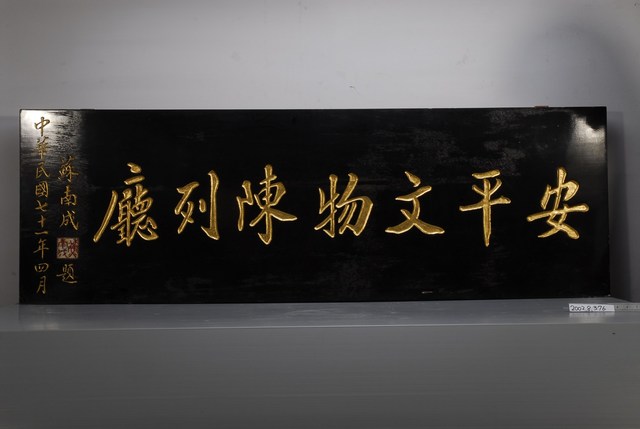 安平文物陳列廳
蘇南成 題
中華民國七十一年四月
2002.8.376